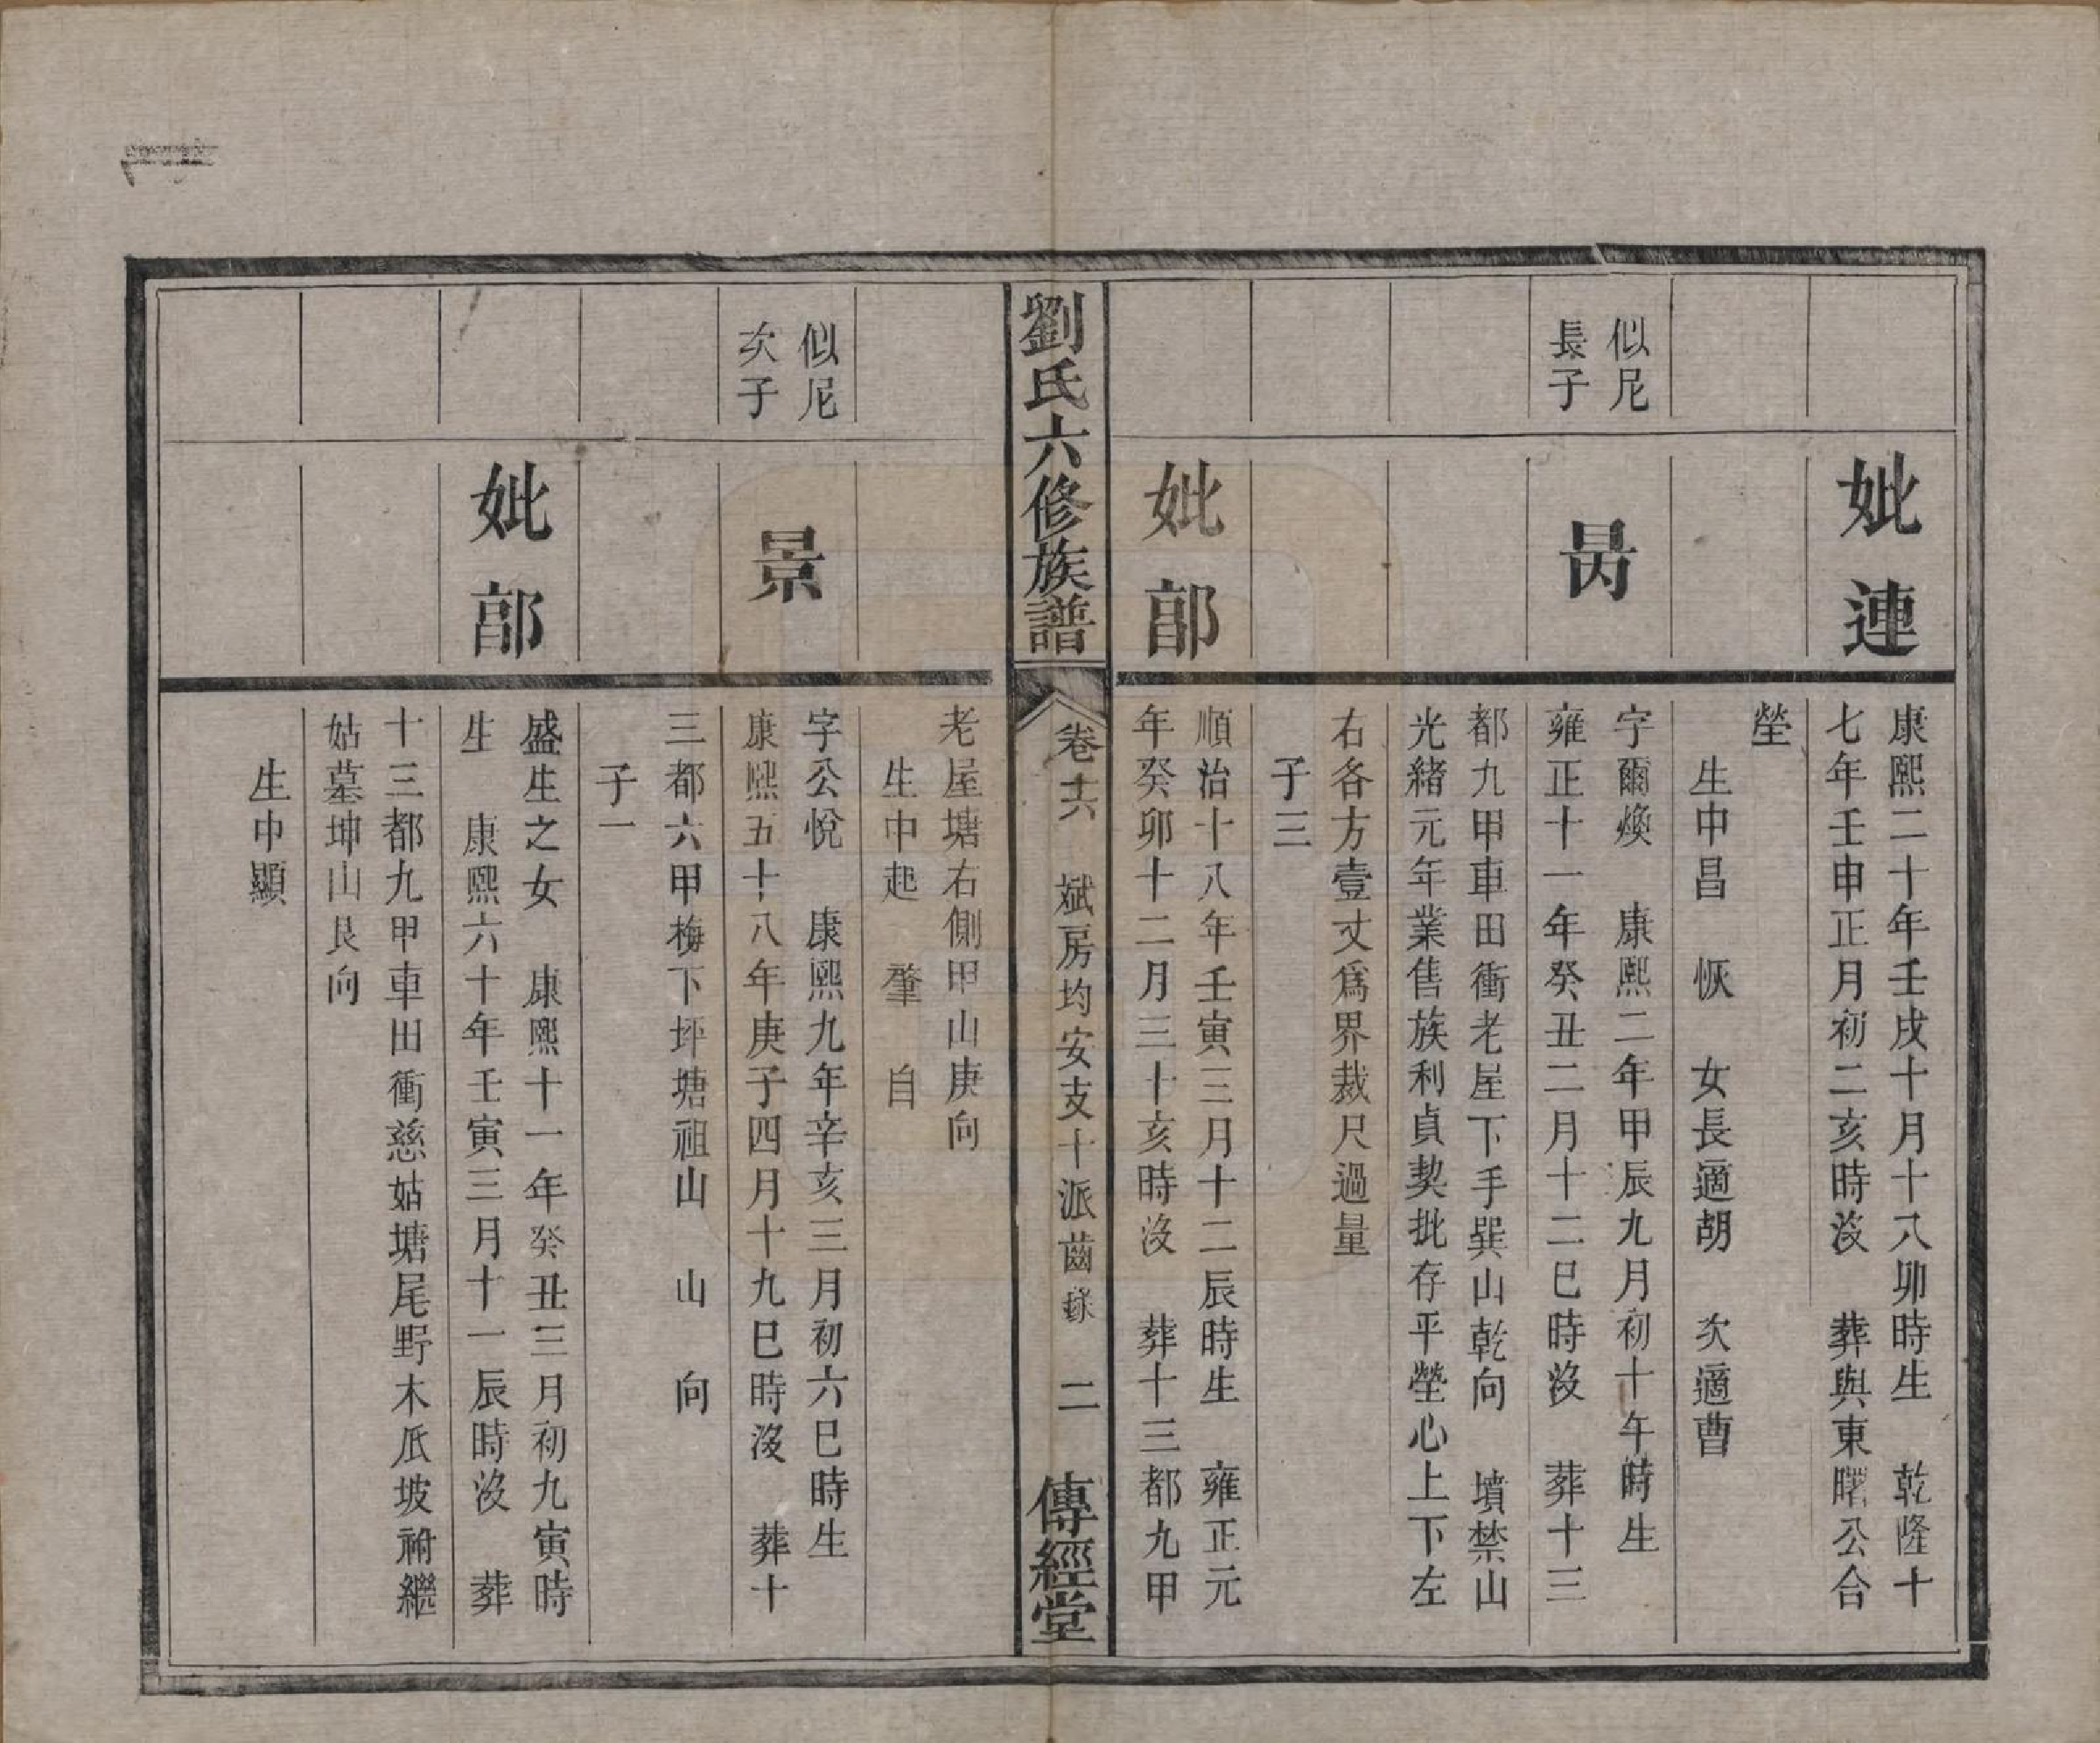 妣連
康熙二十年壬戌十月十八卯時生　乾隆十
七年壬申正月初二亥時沒　葬與東曙公合
塋
生中昌　恢　女長適胡　次適曹
似尼
長子
昺
字爾煥　康熙二年甲辰九月初十午時生
雍正十一年癸丑二月十二巳時沒　葬十三
都九甲車田衝老屋下手巽山乾向　墳禁山
光緒元年業售族利貞契批存平塋心上下左
右各方壹丈爲界裁尺過量
子三
妣郭
順治十八年壬寅三月十二辰時生　雍正元
年癸卯十二月三十亥時沒　葬十三都九甲
劉氏六修族譜
卷十六　斌房均安支十派齒錄　二
傳經堂
老屋塘右側甲山庚向
生中起　肇　自
似尼
次子
景
字公悅　康熙九年辛亥三月初六巳時生
康熙五十八年庚子四月十九巳時沒　葬十
三都六甲梅下坪塘祖山　山　向
子一
妣郭
盛生之女　康熙十一年癸丑三月初九寅時
生　康熙六十年壬寅三月十一辰時沒　葬
十三都九甲車田衝慈姑塘尾野木瓜坡祔繼
姑墓坤山艮向
生中顯